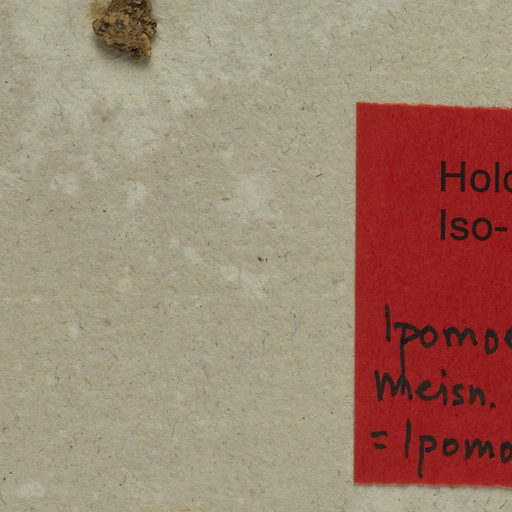 Holo
Iso-
Ipomoe
Meisn.
= Ipomo